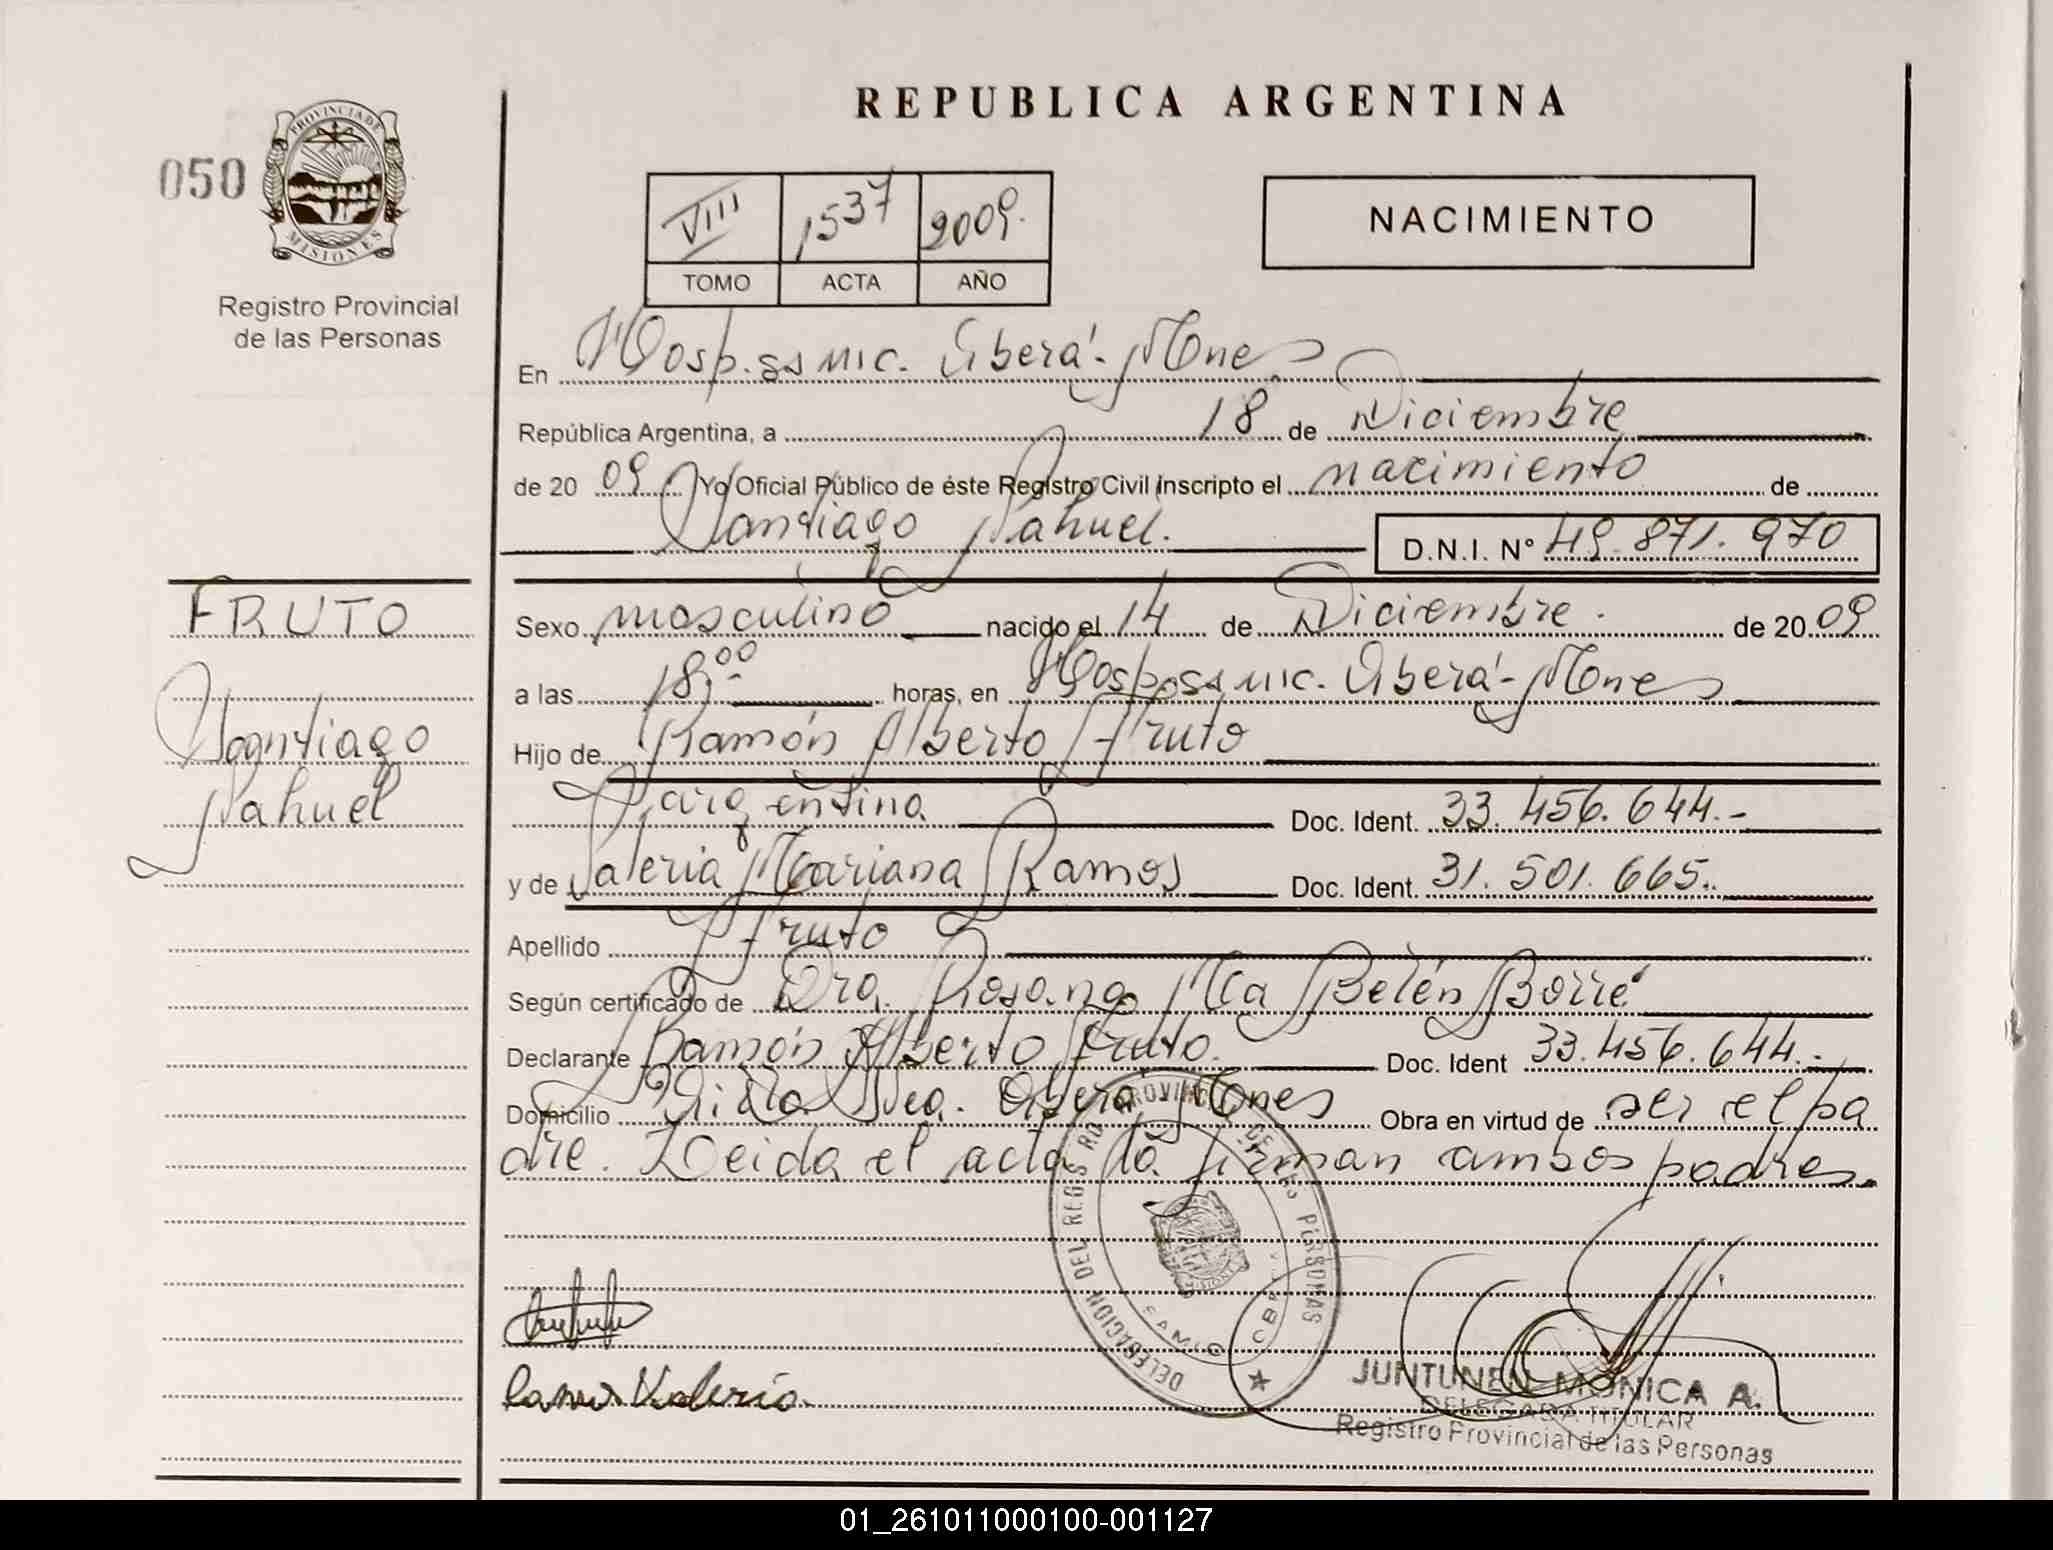 REPUBLICA ARGENTINA
050
PROVINCIA DE
MISIONES
Registro Provincial
de las Personas
VIII 1537 2009.
TOMO ACTA AÑO
NACIMIENTO
En Hosp. ss mic. Oberá - Mnes
República Argentina, a 18 de Diciembre
de 20 09 Yo Oficial Público de éste Registro Civil Inscripto el nacimiento de
Santiago Nahuel. D.N.I. Nº 49.871.970
FRUTO
Santiago
Nahuel
Sexo masculino nacido el 14 de Diciembre. de 20 09
a las 18,00 horas, en Hosp. ss mic. Oberá - Mnes
Hijo de Ramón Alberto Fruto
argentina Doc. Ident. 33.456.644.-
y de Valeria Mariana Ramos Doc. Ident. 31.501.665.
Apellido Fruto
Según certificado de Dra. Rosana Ma Belén Borré
Declarante Ramón Alberto Fruto. Doc. Ident 33.456.644.-
Domicilio Oberá Mnes Obra en virtud de ser el pa
dre. Leida el acta la firman ambos padres.
DELEGACION DEL REGISTRO PROVINCIAL DE LES PERSONAS
Ramos Valeria.
JUNTUNEN MONICA A.
DELEGADA TITULAR
Registro Provincial de las Personas
01_261011000100-001127